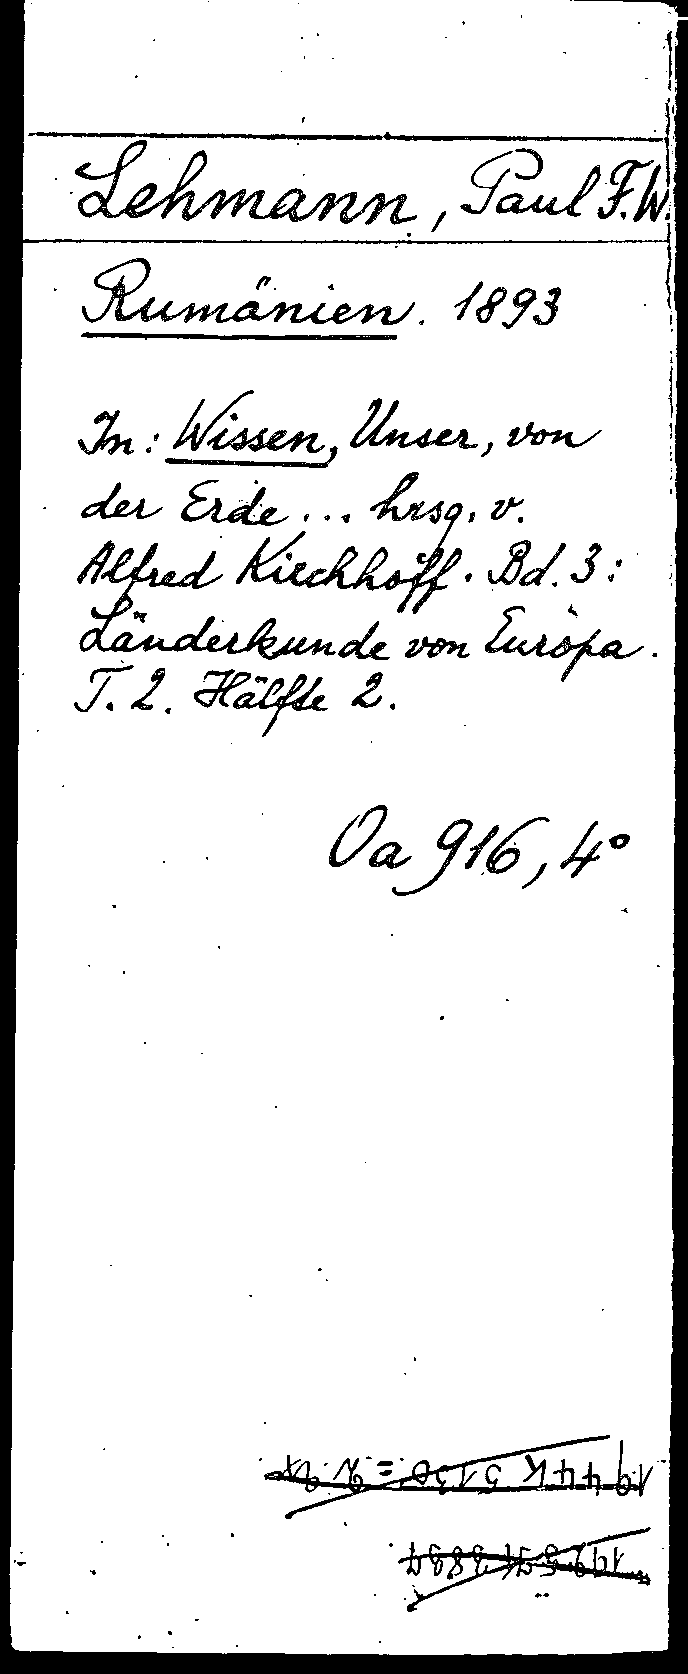 Lehmann, Paul F.W.
Rumänien. 1893
In: Wissen, Unser, von
der Erde... hrsg. v.
Alfred Kirchhoff. Bd. 3:
Länderkunde von Europa.
T. 2. Hälfte 2.
Oa 916, 4°